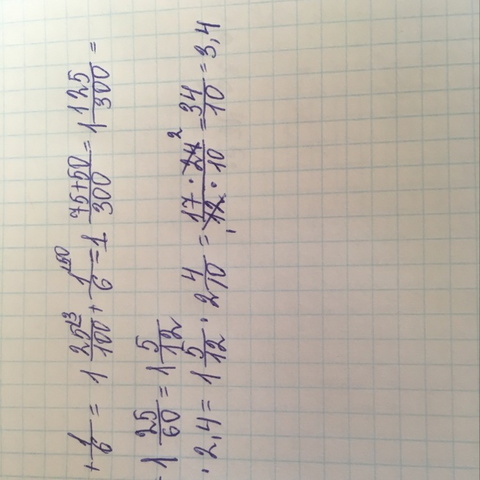 + 1/6 = 1 25^{\3}/100 + 1^{\50}/6 = 1 75+50/300 = 1 125/300 =
= 1 25/60 = 1 5/12
· 2,4 = 1 5/12 · 2 4/10 = 17 · 24 2/12 · 10 1 = 34/10 = 3,4